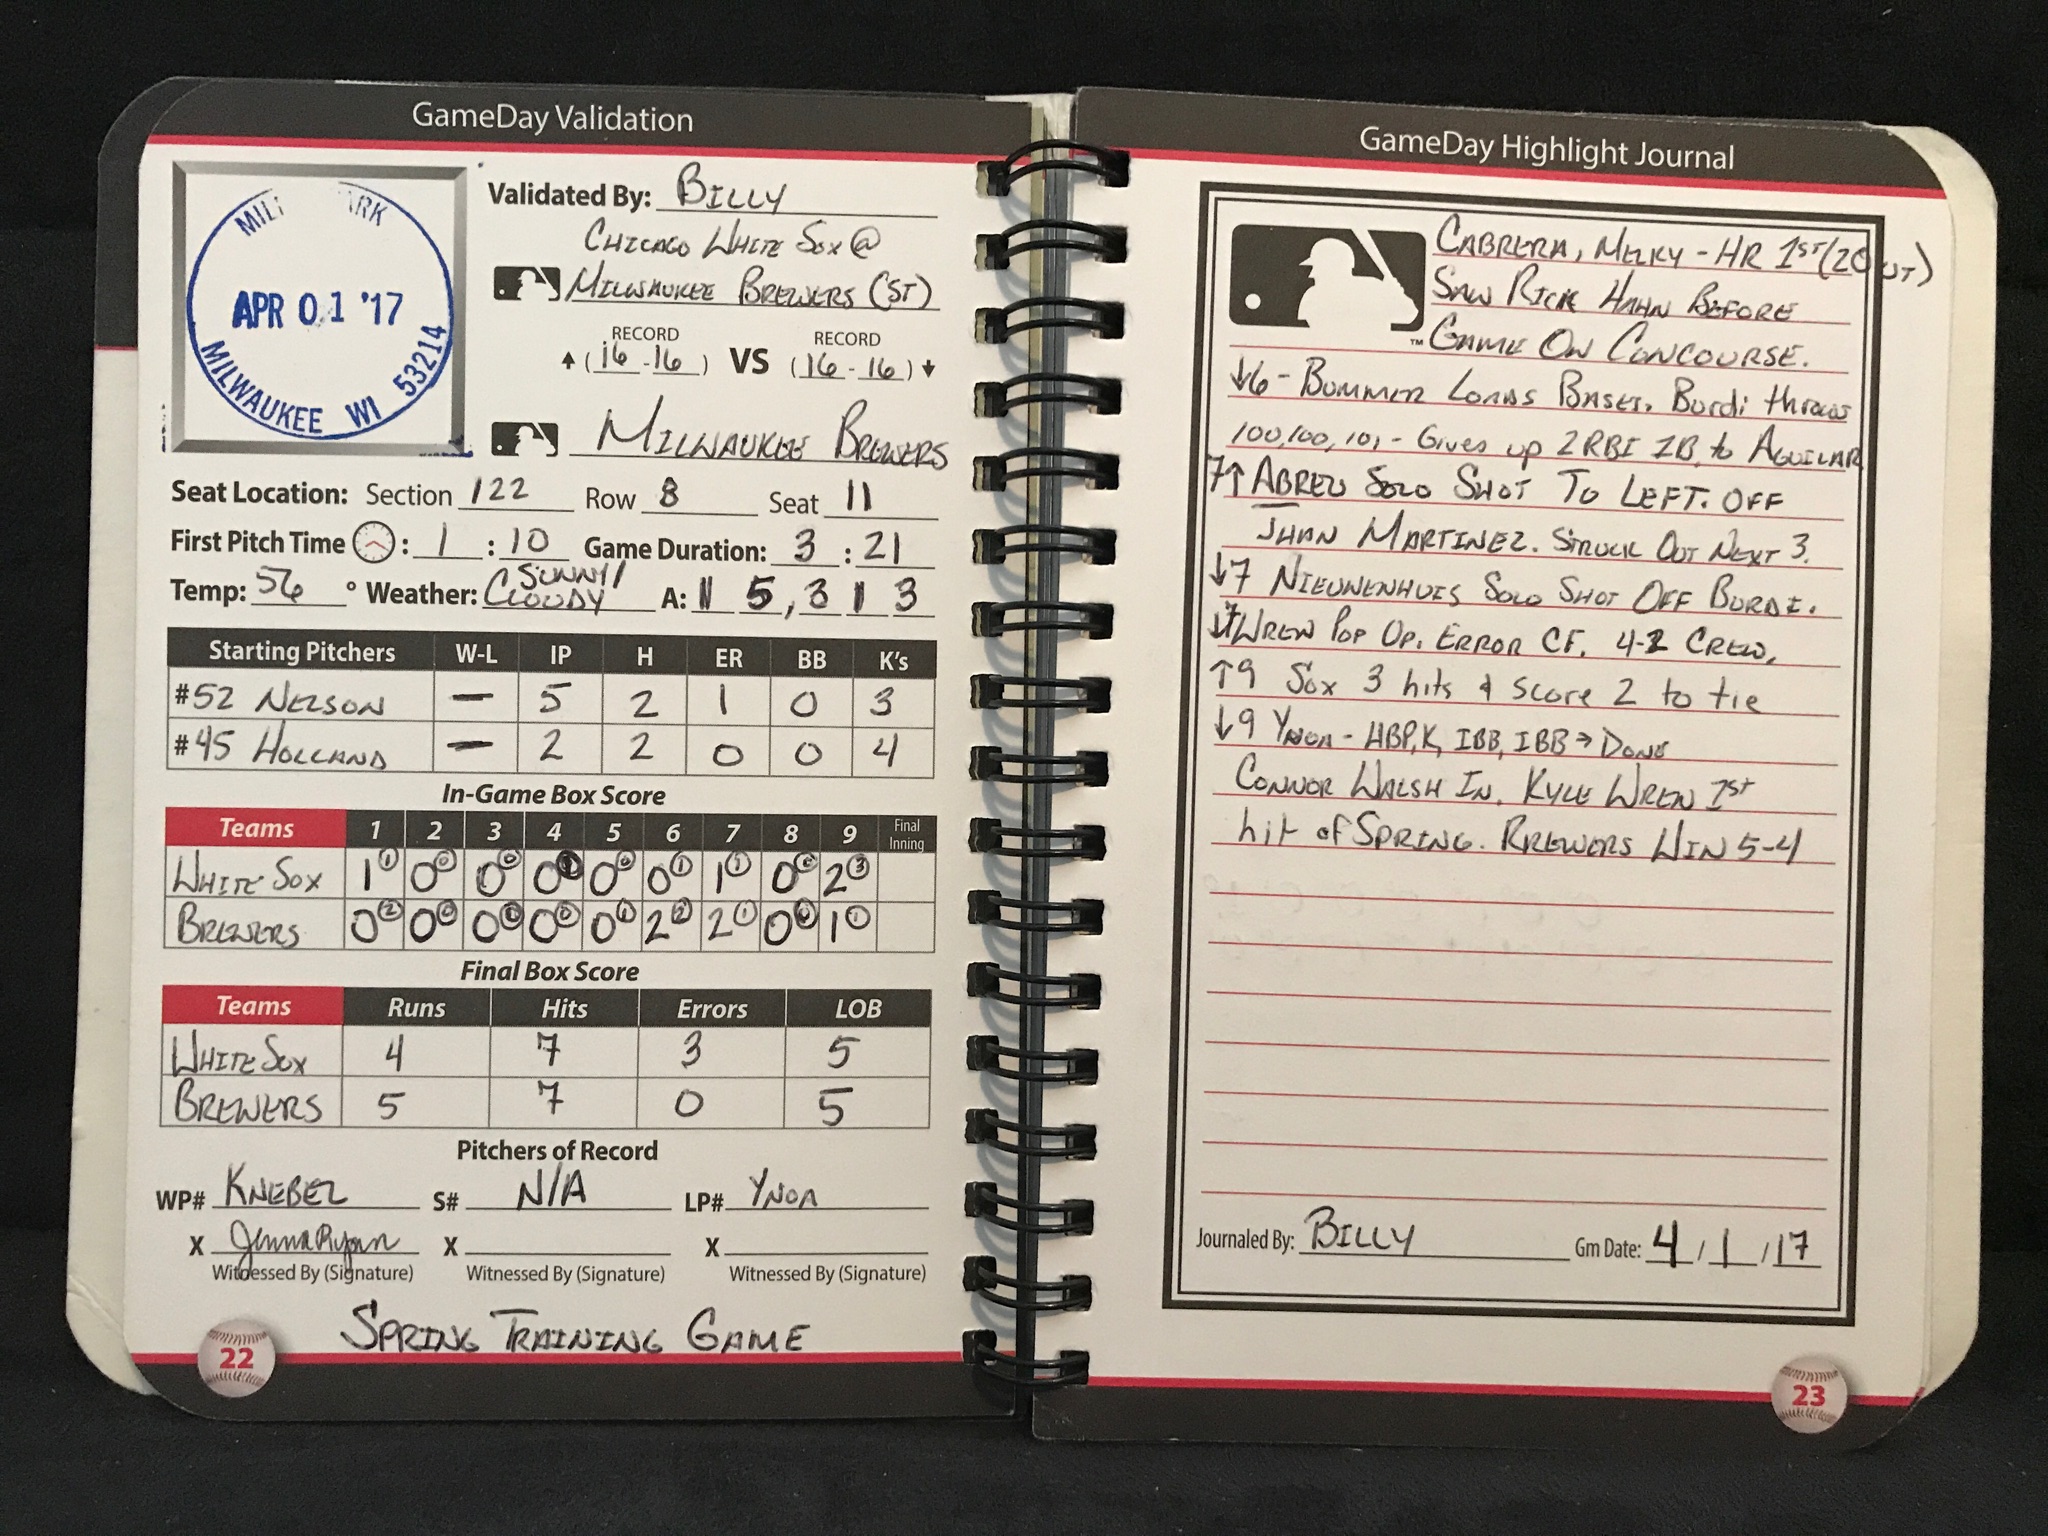 GameDay Validation
MIL PARK
APR 01 '17
MILWAUKEE WI 53214
Validated By: BILLY
CHICAGO WHITE SOX @
MILWAUKEE BREWERS (ST)
RECORD RECORD
(16-16) VS (16-16)
MILWAUKEE BREWERS
Seat Location: Section 122 Row 8 Seat 11
First Pitch Time : 1 : 10 Game Duration: 3 : 21
Temp: 56 ° Weather: SUNNY/ CLOUDY A: 15,313
Starting Pitchers W-L IP H ER BB K's
#52 NELSON — 5 2 1 0 3
#45 HOLLAND — 2 2 0 0 4
In-Game Box Score
Teams 1 2 3 4 5 6 7 8 9 Final Inning
WHITE SOX 1 0 0 0 0 0 1 0 2
BREWERS 0 0 0 0 0 2 2 0 1
Final Box Score
Teams Runs Hits Errors LOB
WHITE SOX 4 7 3 5
BREWERS 5 7 0 5
Pitchers of Record
WP# KNEBEL S# N/A LP# YNOA
X Jenna Ryan X X
Witnessed By (Signature) Witnessed By (Signature) Witnessed By (Signature)
SPRING TRAINING GAME
22
GameDay Highlight Journal
CABRERA, MELKY - HR 1ST (2 OUT)
SAW RICK HAHN BEFORE
™ GAME ON CONCOURSE.
↓6 - BUMMER LOADS BASES. Burdi throws
100, 100, 101 - Gives up 2 RBI 1B to AGUILAR
7↑ ABREU SOLO SHOT TO LEFT. OFF
JHAN MARTINEZ. STRUCK OUT NEXT 3.
↓7 NIEUWENHUIS SOLO SHOT OFF BURDI.
↓7 WREN POP UP. ERROR CF. 4-2 CREW.
↑9 SOX 3 hits & score 2 to tie
↓9 YNOA - HBP, K, IBB, IBB → DONE
CONNOR WALSH IN. KYLE WREN 1ST
hit of SPRING. BREWERS WIN 5-4
Journaled By: BILLY Gm Date: 4/1/17
23